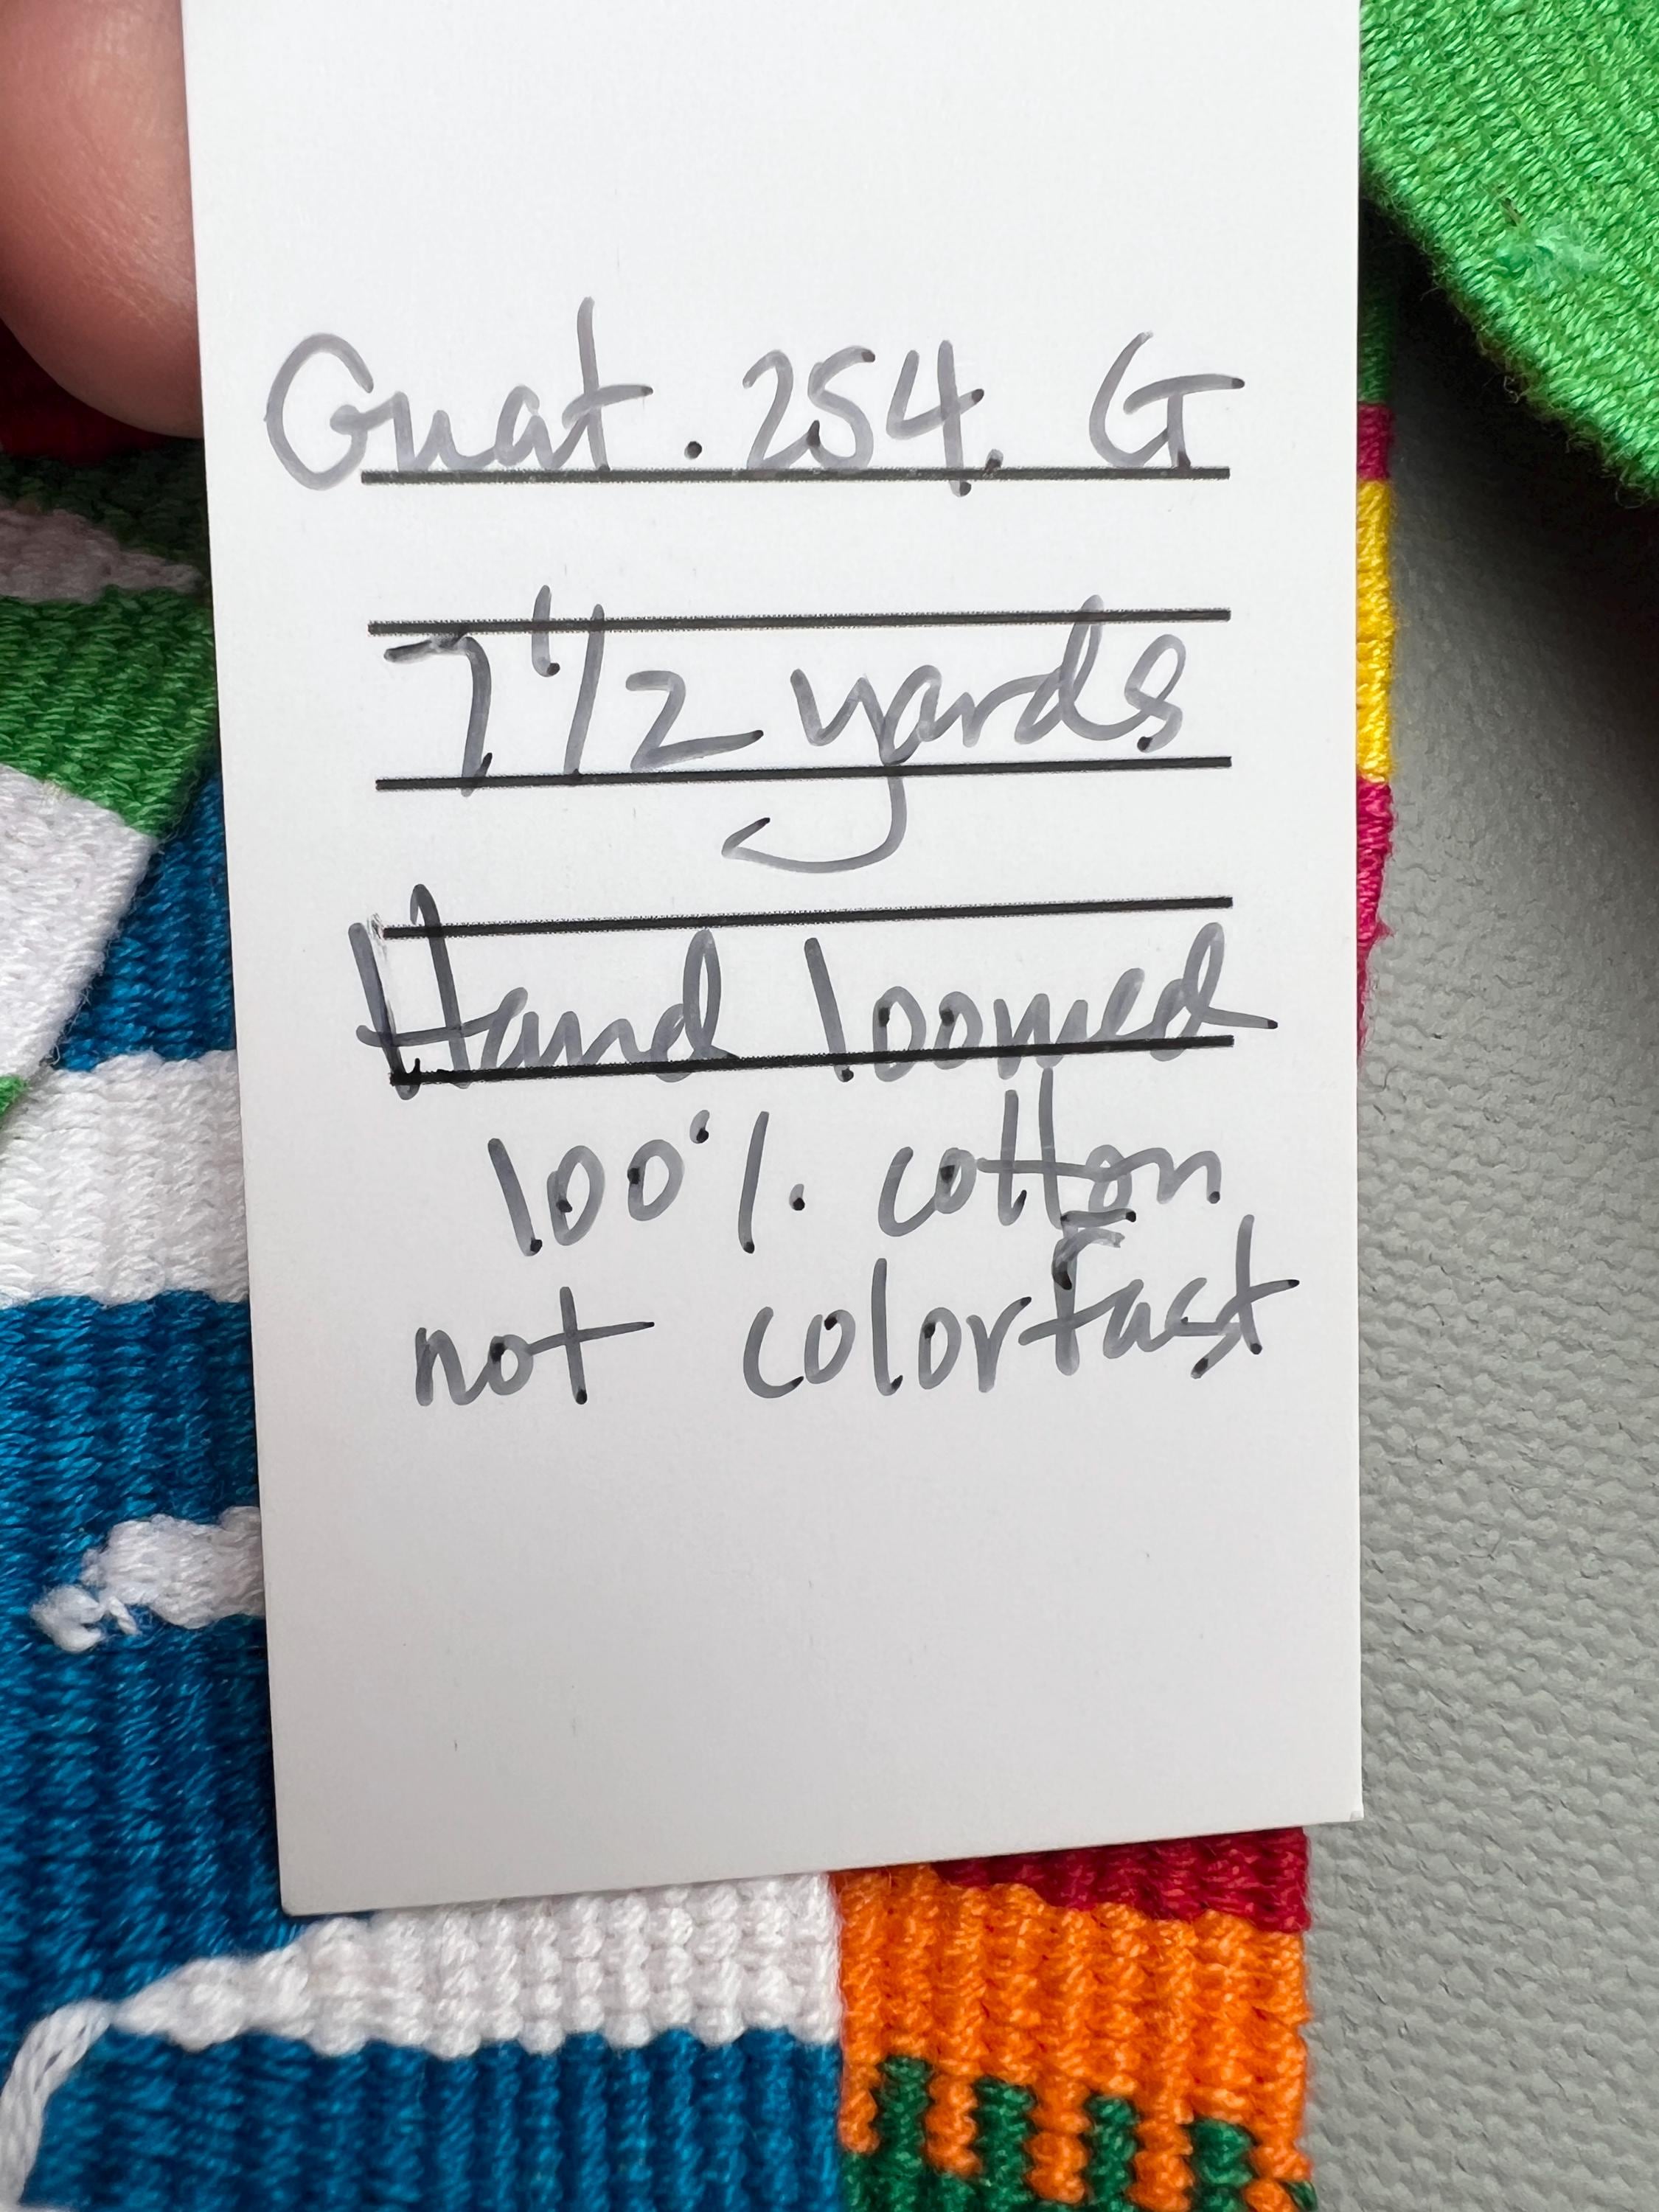 Guat. 254. G
7 1/2 yards
Hand loomed
100% cotton
not colorfast